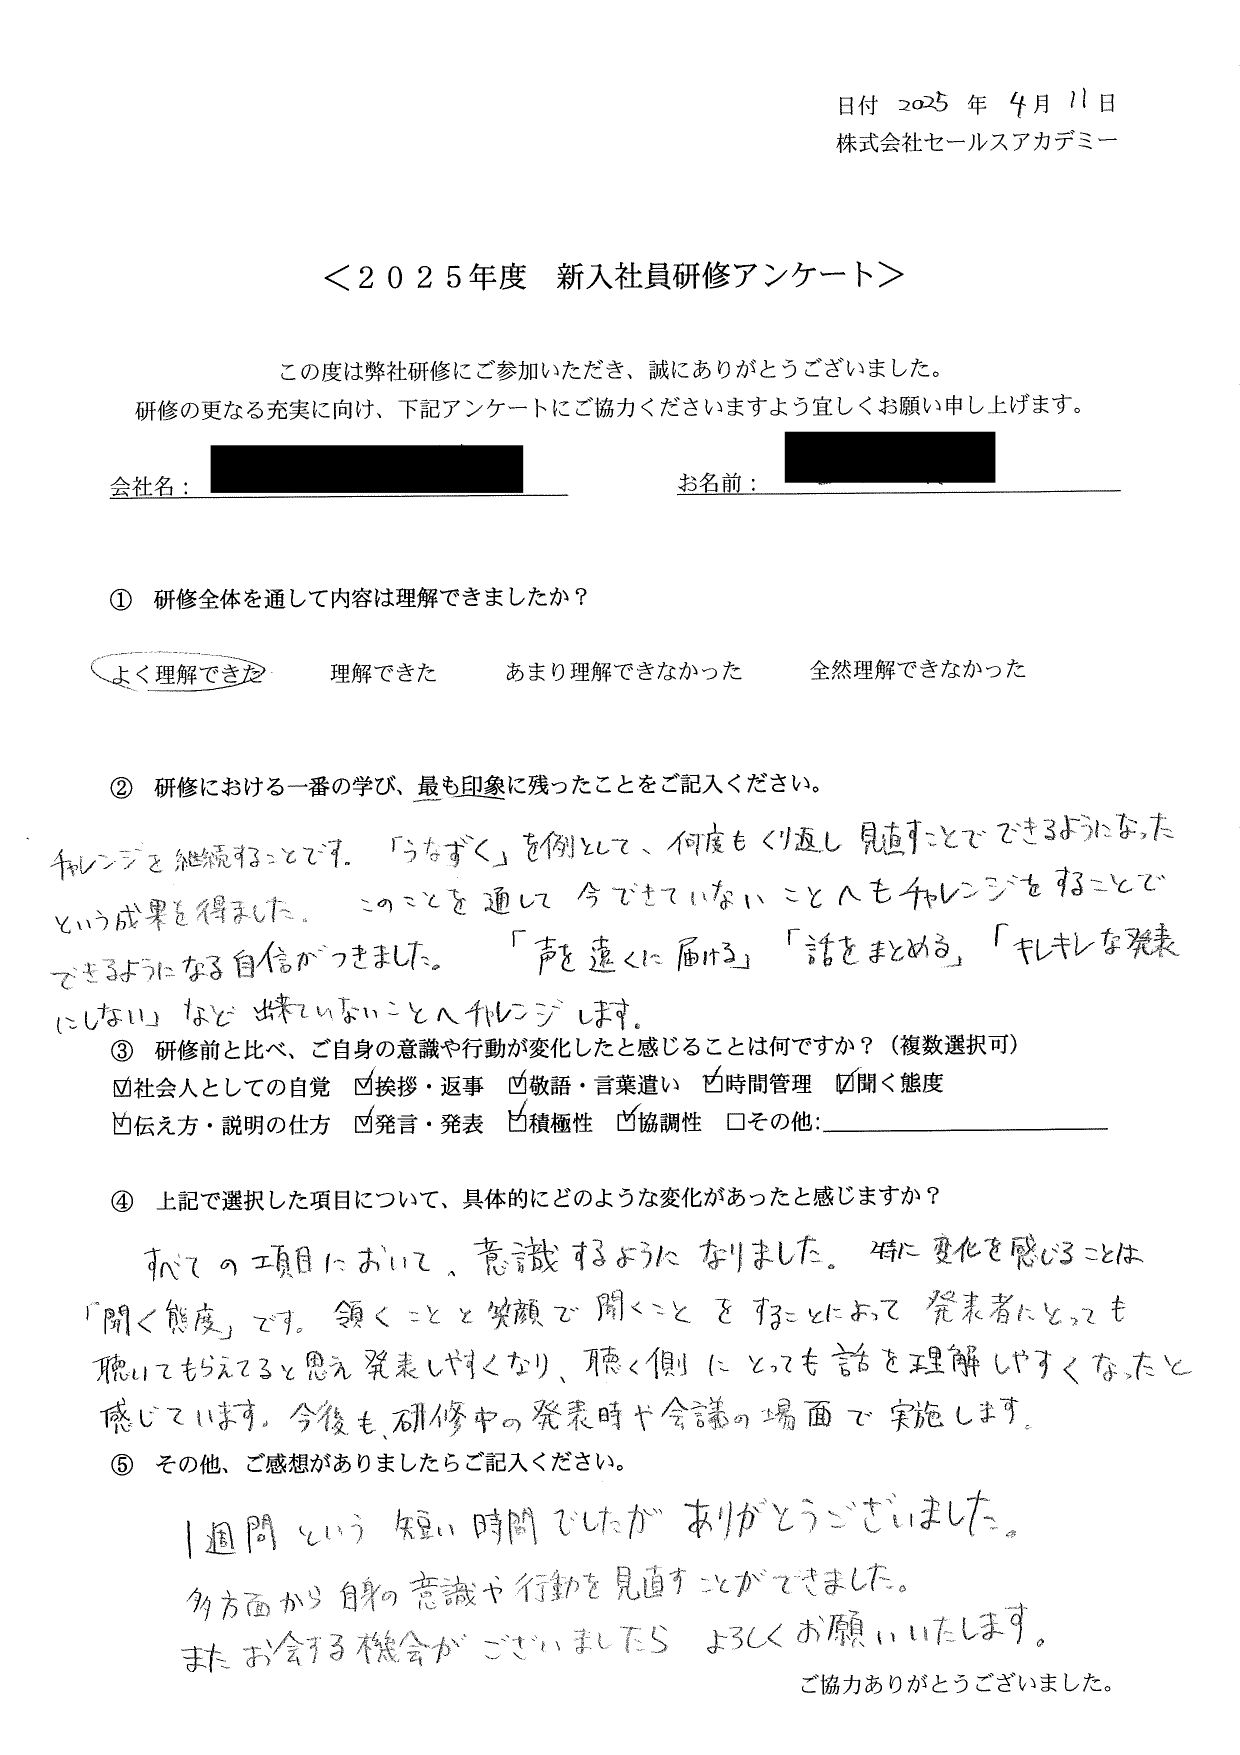 日付 2025 年 4月 11日
株式会社セールスアカデミー
＜２０２５年度　新入社員研修アンケート＞
この度は弊社研修にご参加いただき、誠にありがとうございました。
研修の更なる充実に向け、下記アンケートにご協力くださいますよう宜しくお願い申し上げます。
会社名：　お名前：
①　研修全体を通して内容は理解できましたか？
よく理解できた　理解できた　あまり理解できなかった　全然理解できなかった
②　研修における一番の学び、最も印象に残ったことをご記入ください。
チャレンジを継続することです。「うなずく」を例として、何度もくり返し見直すことでできるようになった
という成果を得ました。このことを通して今できていないことへもチャレンジをすることで
できるようになる自信がつきました。「声を遠くに届ける」「話をまとめる」「キレキレな発表
にしない」など出来ていないことへチャレンジします。
③　研修前と比べ、ご自身の意識や行動が変化したと感じることは何ですか？（複数選択可）
☑社会人としての自覚　☑挨拶・返事　☑敬語・言葉遣い　☑時間管理　☑聞く態度
☑伝え方・説明の仕方　☑発言・発表　☑積極性　☑協調性　□その他:
④　上記で選択した項目について、具体的にどのような変化があったと感じますか？
すべての項目において、意識するようになりました。特に変化を感じることは
「聞く態度」です。頷くことと笑顔で聞くことをすることによって発表者にとっても
聴いてもらえてると思え発表しやすくなり、聴く側にとっても話を理解しやすくなったと
感じています。今後も、研修中の発表時や会議の場面で実施します。
⑤　その他、ご感想がありましたらご記入ください。
1週間という短い時間でしたがありがとうございました。
多方面から自身の意識や行動を見直すことができました。
またお会する機会がございましたらよろしくお願いいたします。
ご協力ありがとうございました。